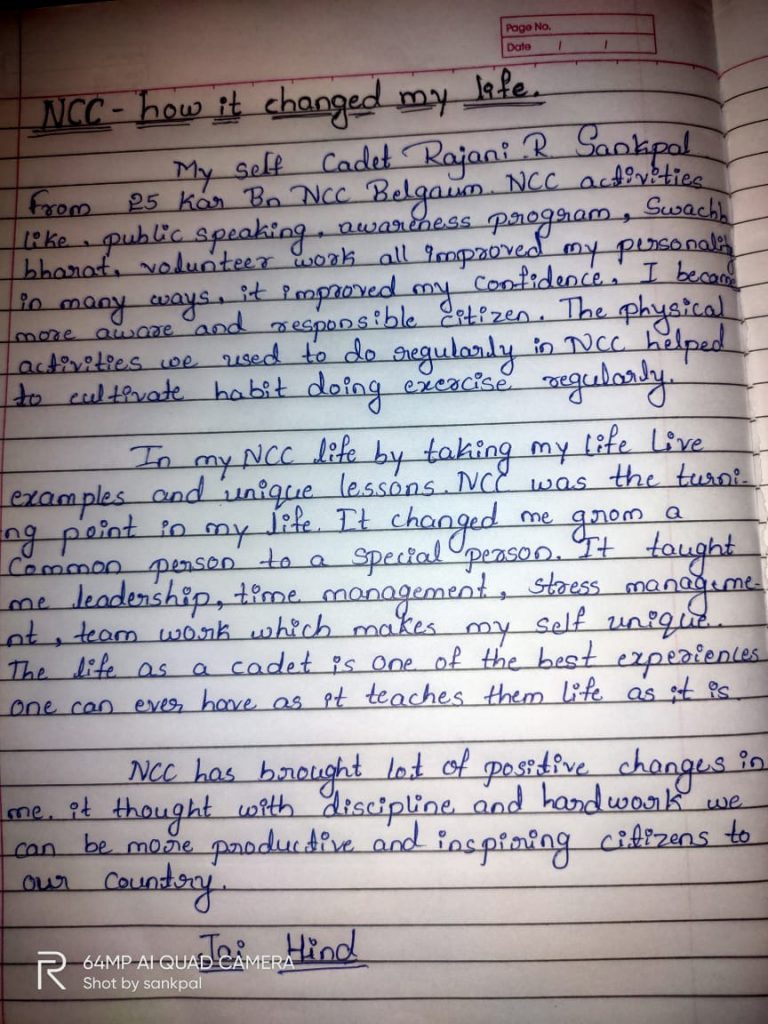 Page No.
Date / /
NCC - how it changed my life.
My self Cadet Rajani R Sankpal
from 25 Kar Bn NCC Belgaum. NCC activities
like, public speaking, awareness program, Swachh
bharat, volunteer work all improved my personality
in many ways, it improved my confidence, I became
more aware and responsible citizen. The physical
activities we used to do regularly in NCC helped
to cultivate habit doing exercise regularly.
In my NCC life by taking my life live
examples and unique lessons. NCC was the turni-
ng point in my life. It changed me grom a
common person to a special person. It taught
me leadership, time management, stress manageme-
nt, team work which makes my self unique.
The life as a cadet is one of the best experiences
one can ever have as it teaches them life as it is
NCC has brought lot of positive changes in
me. it thought with discipline and hardwork we
can be more productive and inspiring citizens to
our country.
Jai Hind
R 64MP AI QUAD CAMERA
Shot by sankpal